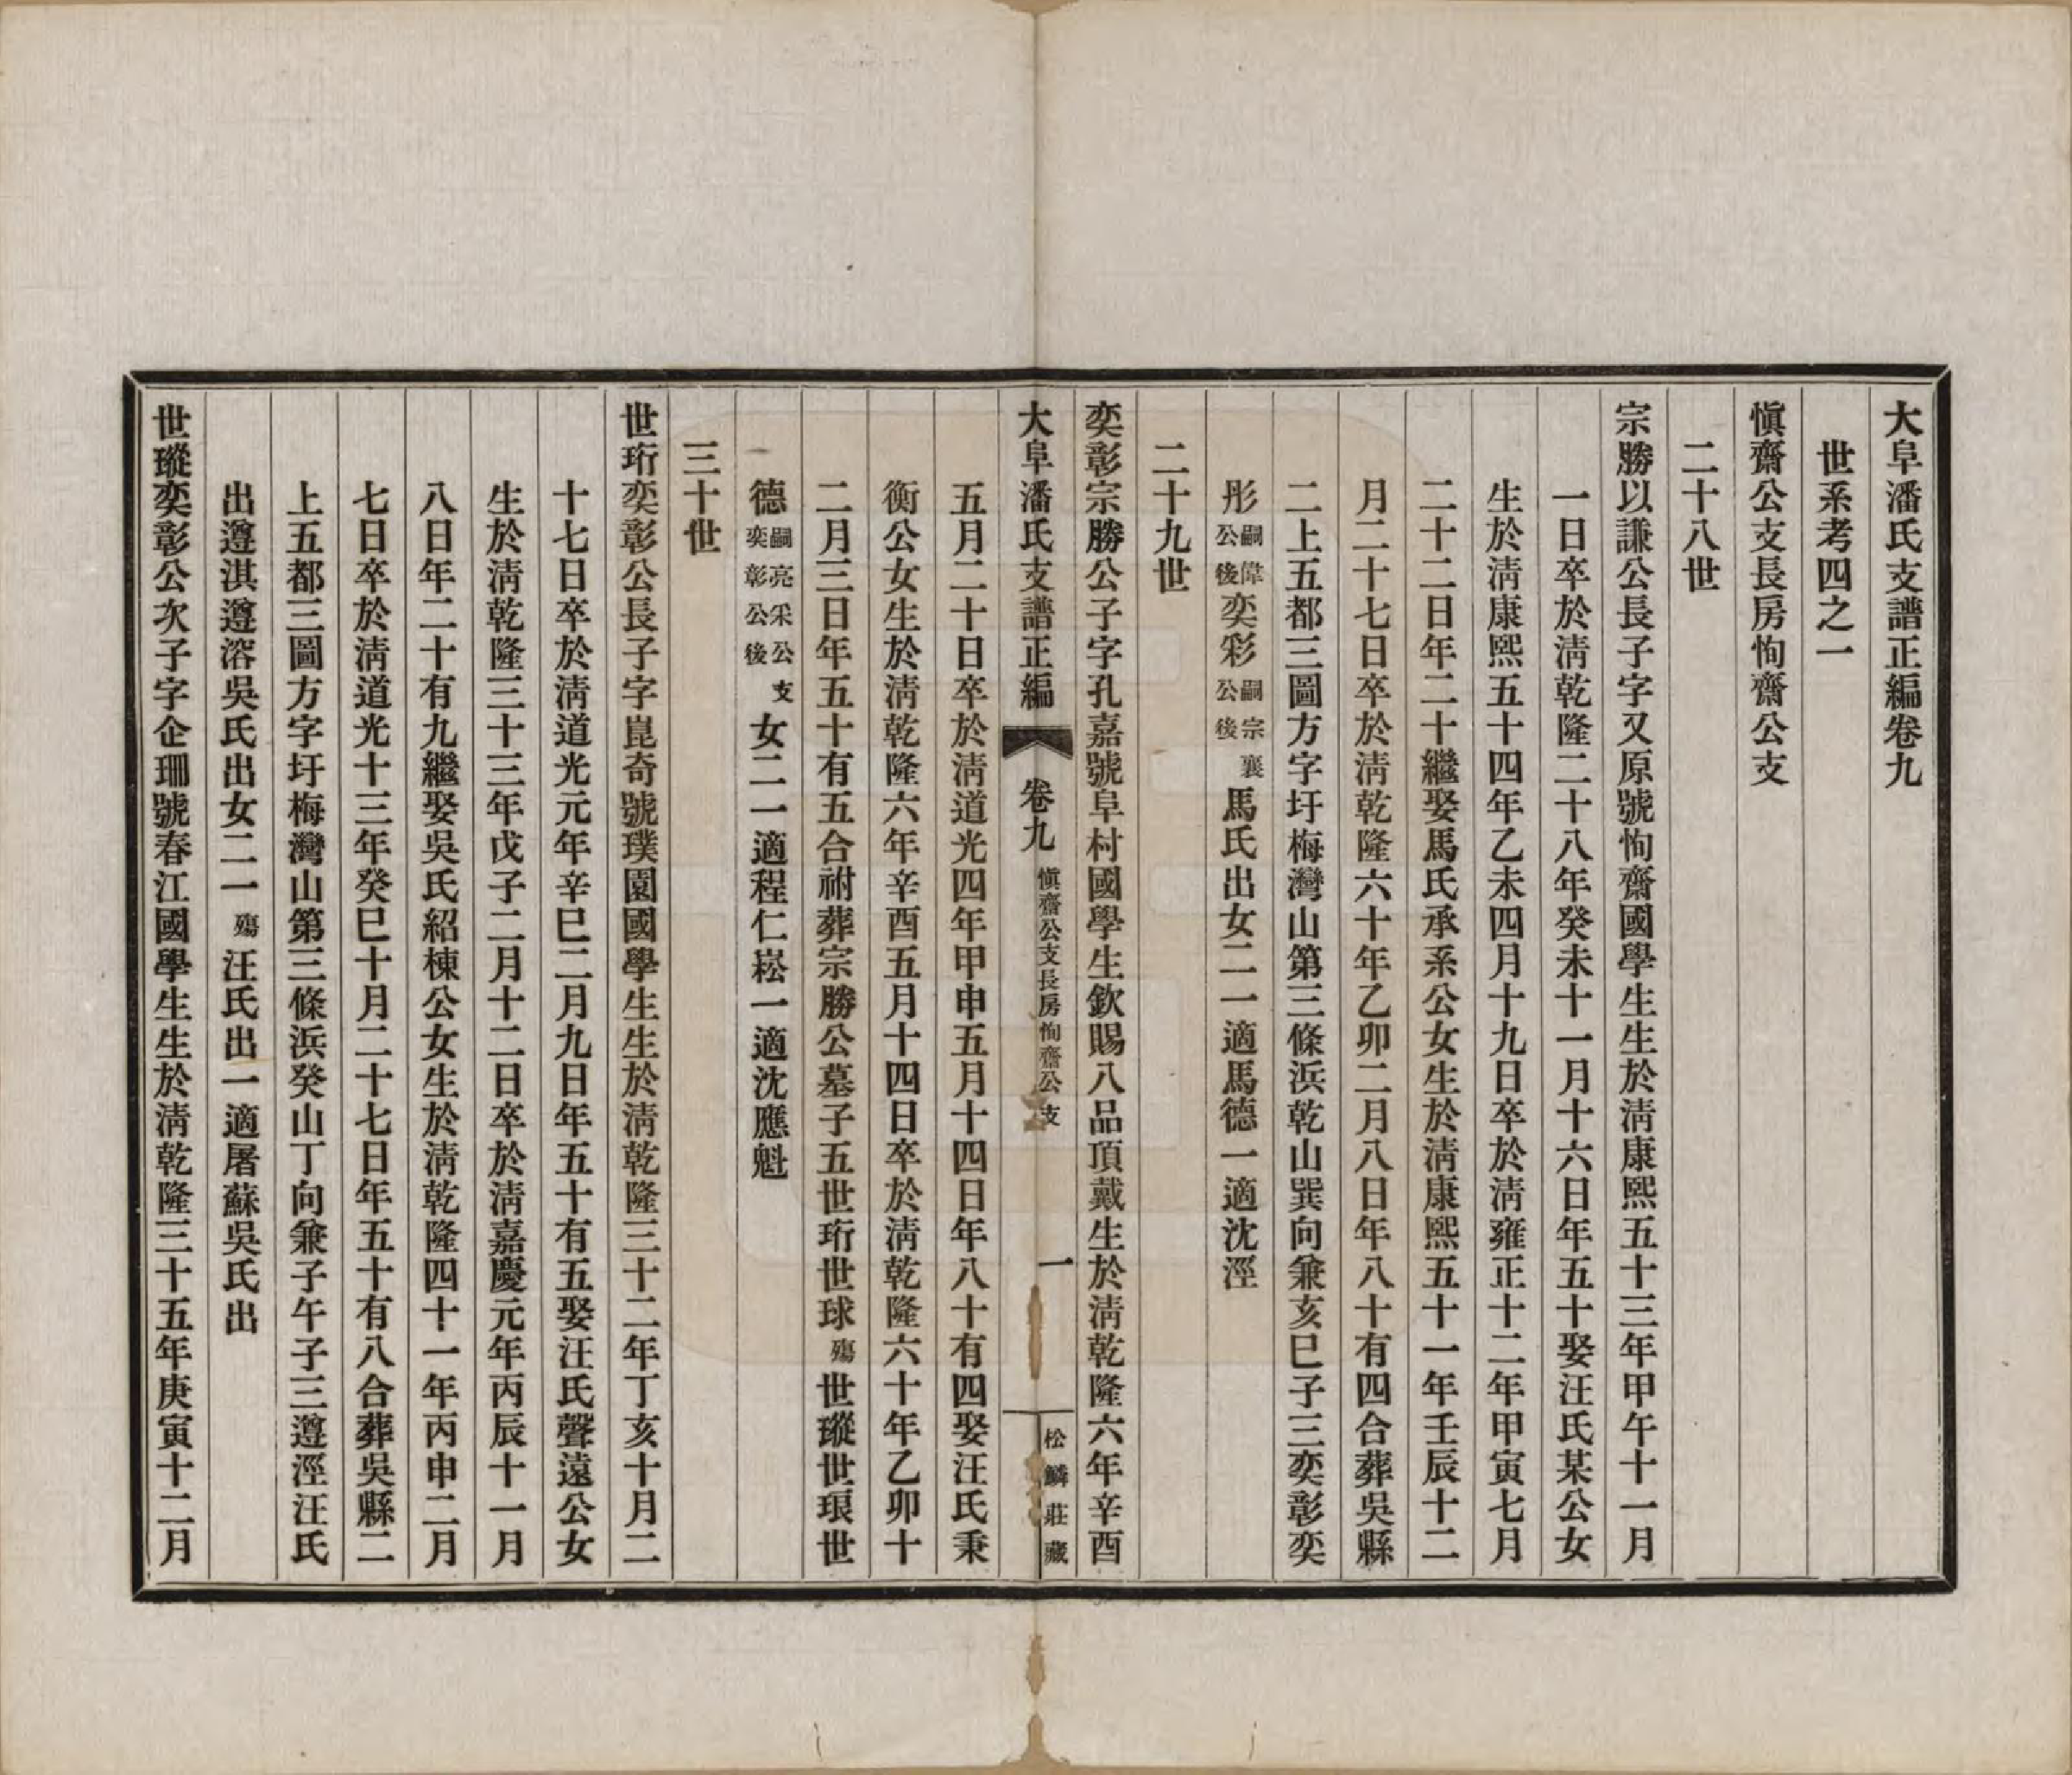 大阜潘氏支譜正編卷九
世系考四之一
愼齋公支長房恂齋公支
二十八世
宗勝以謙公長子字又原號恂齋國學生生於淸康熙五十三年甲午十一月
一日卒於淸乾隆二十八年癸未十一月十六日年五十娶汪氏某公女
生於淸康熙五十四年乙未四月十九日卒於淸雍正十二年甲寅七月
二十二日年二十繼娶馬氏承系公女生於淸康熙五十一年壬辰十二
月二十七日卒於淸乾隆六十年乙卯二月八日年八十有四合葬吳縣
二上五都三圖方字圩梅灣山第三條浜乾山巽向兼亥巳子三奕彰奕
彤嗣偉公後奕彩嗣宗襄公後馬氏出女二一適馬德一適沈涇
二十九世
奕彰宗勝公子字孔嘉號阜村國學生欽賜八品頂戴生於淸乾隆六年辛酉
大阜潘氏支譜正編 卷九 愼齋公支長房恂齋公支 一 松鱗莊藏
五月二十日卒於淸道光四年甲申五月十四日年八十有四娶汪氏秉
衡公女生於淸乾隆六年辛酉五月十四日卒於淸乾隆六十年乙卯十
二月三日年五十有五合祔葬宗勝公墓子五世珩世球殤世瑽世琅世
德嗣亮采公支奕彰公後女二一適程仁崧一適沈應魁
三十世
世珩奕彰公長子字崑奇號璞園國學生生於淸乾隆三十二年丁亥十月二
十七日卒於淸道光元年辛巳二月九日年五十有五娶汪氏聲遠公女
生於淸乾隆三十三年戊子二月十二日卒於淸嘉慶元年丙辰十一月
八日年二十有九繼娶吳氏紹棟公女生於淸乾隆四十一年丙申二月
七日卒於淸道光十三年癸巳十月二十七日年五十有八合葬吳縣二
上五都三圖方字圩梅灣山第三條浜癸山丁向兼子午子三遵涇汪氏
出遵淇遵溶吳氏出女二一殤汪氏出一適屠蘇吳氏出
世瑽奕彰公次子字企珊號春江國學生生於淸乾隆三十五年庚寅十二月